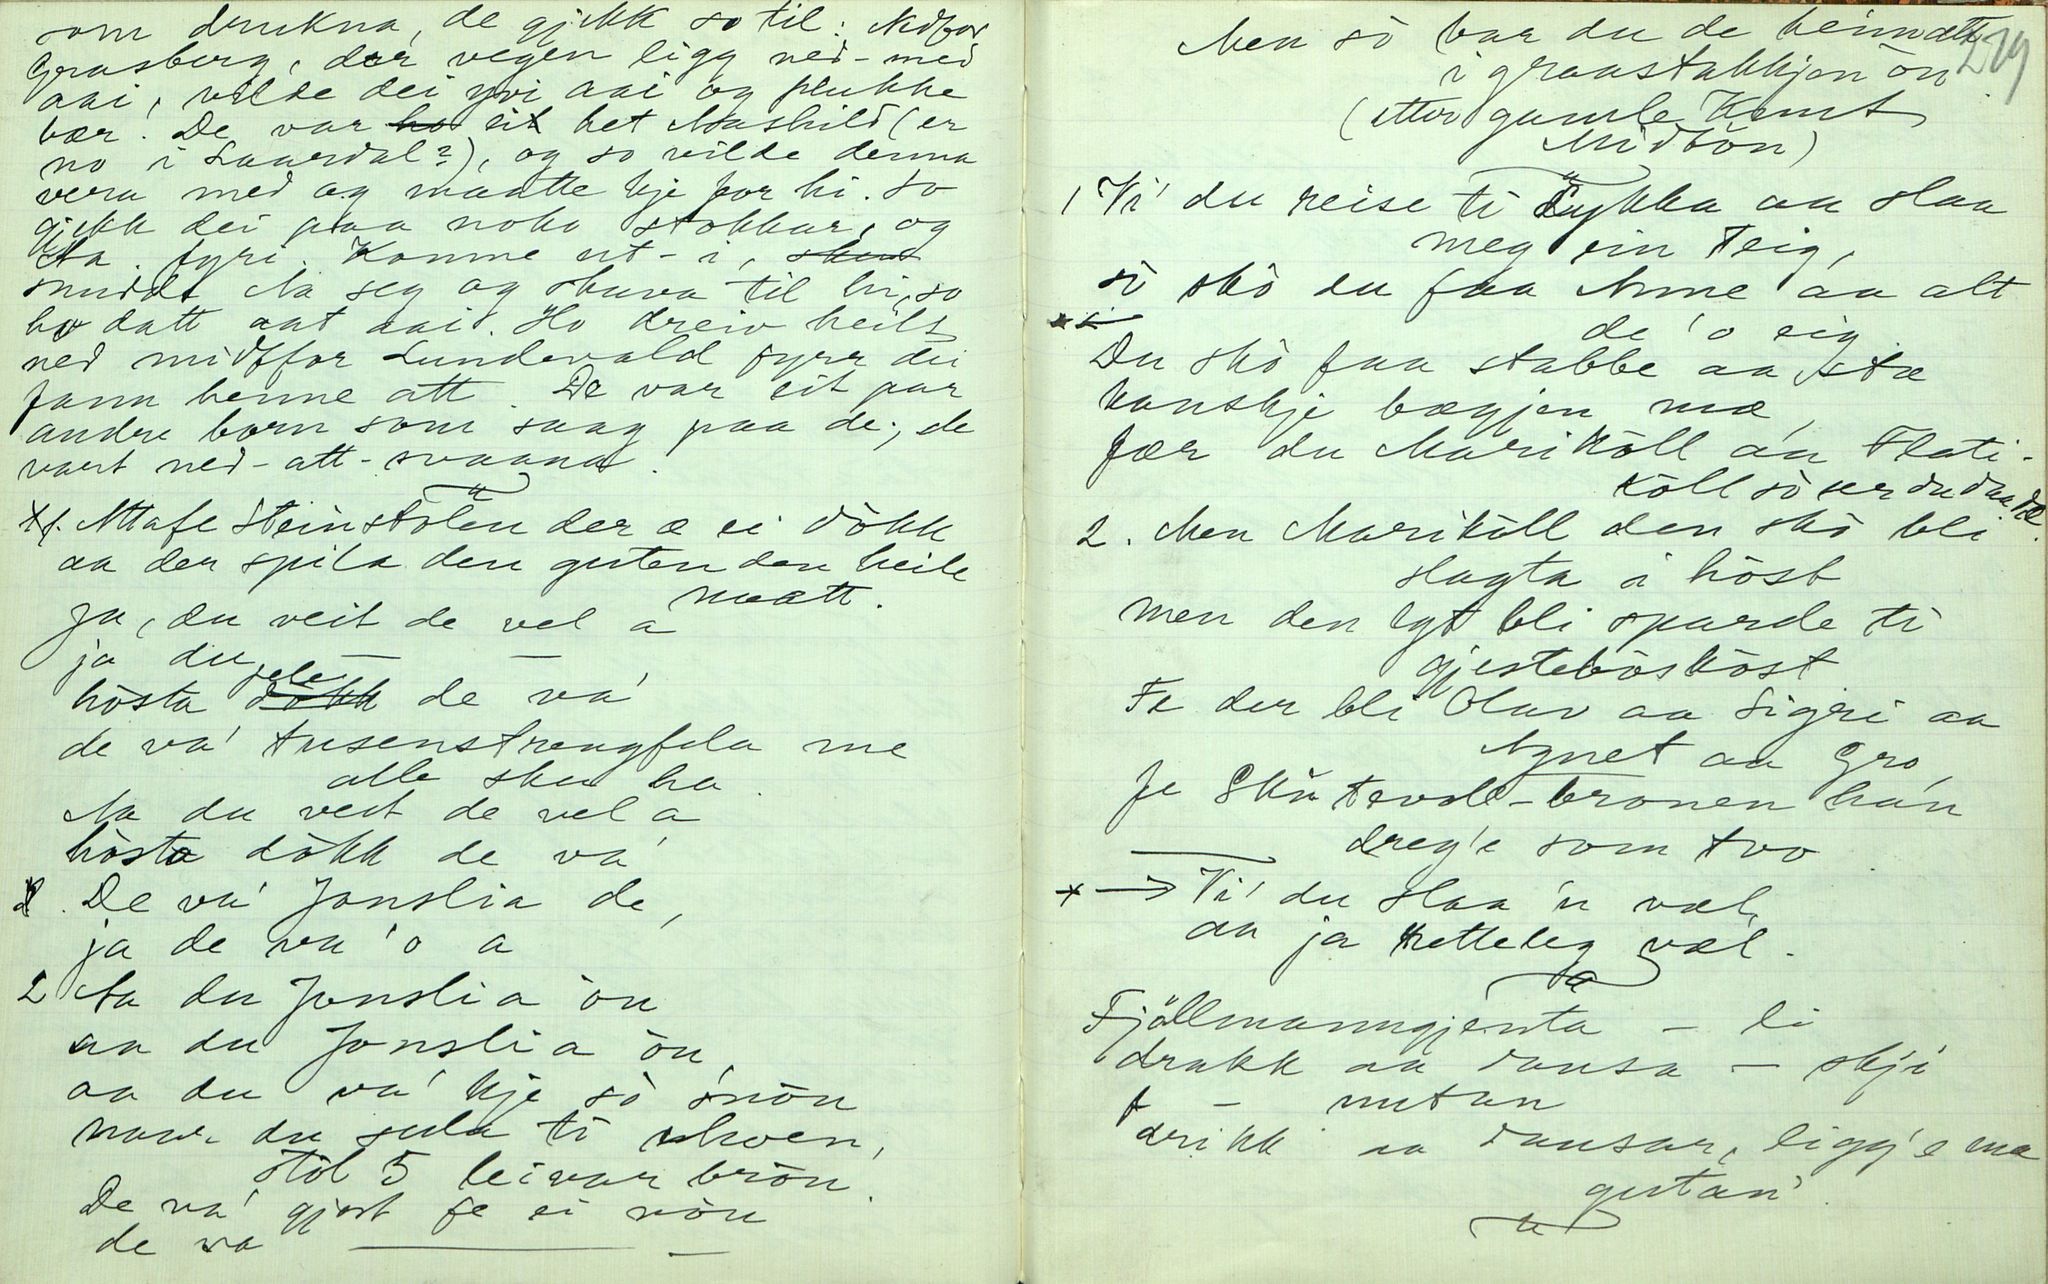 som drukna, de gjekk so til: Nedfor
Grasberg, der vegen ligg ned-med
aai, vilde dei yvi aai og plukke
bær. De var ho eit het Mashild (er
no i Laardal?), og so vilde denna
vera med og maatte kje for hi. So
gjekk dei paa noko stokkar, og
Aa. fyri. Komne ut-i,
snudde Aa seg og skuva til hi, so
ho datt aat aai. Ho dreiv heilt
ned midtfor Lundevald fyrr dei
fann henne att. De var eit par
andre born som saag paa de; de
vart ned-att-svaana.
Attafe Steinstölen der æ ei dökk
aa der spila den guten den heile
naatt.
Ja, du veit de vel a
ja du — —
hösta dökk fele de va'
de va' tusenstrengfela me
alle sku ha.
Aa du veit de vel a
hösta dökk de va'
De va' Jonslia de,
ja de va 'o a
2 Aa du Jonslia ön
aa du Jonslia ön,
aa du va' kje so snön
naar du sula ti
stöl 5 leivar brön.
De va' gjort fe ei nön
de va — —
219
Men sò var du de heimatt
i graastakkjen ön
(etter gamle Knut
Midbön)
1 Vi' du reise ti Lykkja aa slaa
meg ein teig,
sò skò du faa Anne aa alt
de 'o eig
Du skò faa stabbe aa sta
kanskje bægjen mæ
fær du Mariköll aa Flati-
köll sò ser du daa de.
2. Men Mariköll den skò bli
slagta i höst
men den lyt bli sparde ti
gjestebòsköst
Fe der bli Olav aa Sigri aa
Agnet aa Gro
fe Skötevele-bronen han
dreg'e som tvo
x → Vi' du slaa 'n væl,
aa ja retteleg væl.
Fjöllmanngjenta — li
drakk aa dansa — skji
— nutan
drikk aa dansar, ligg'e mæ
gutan'.